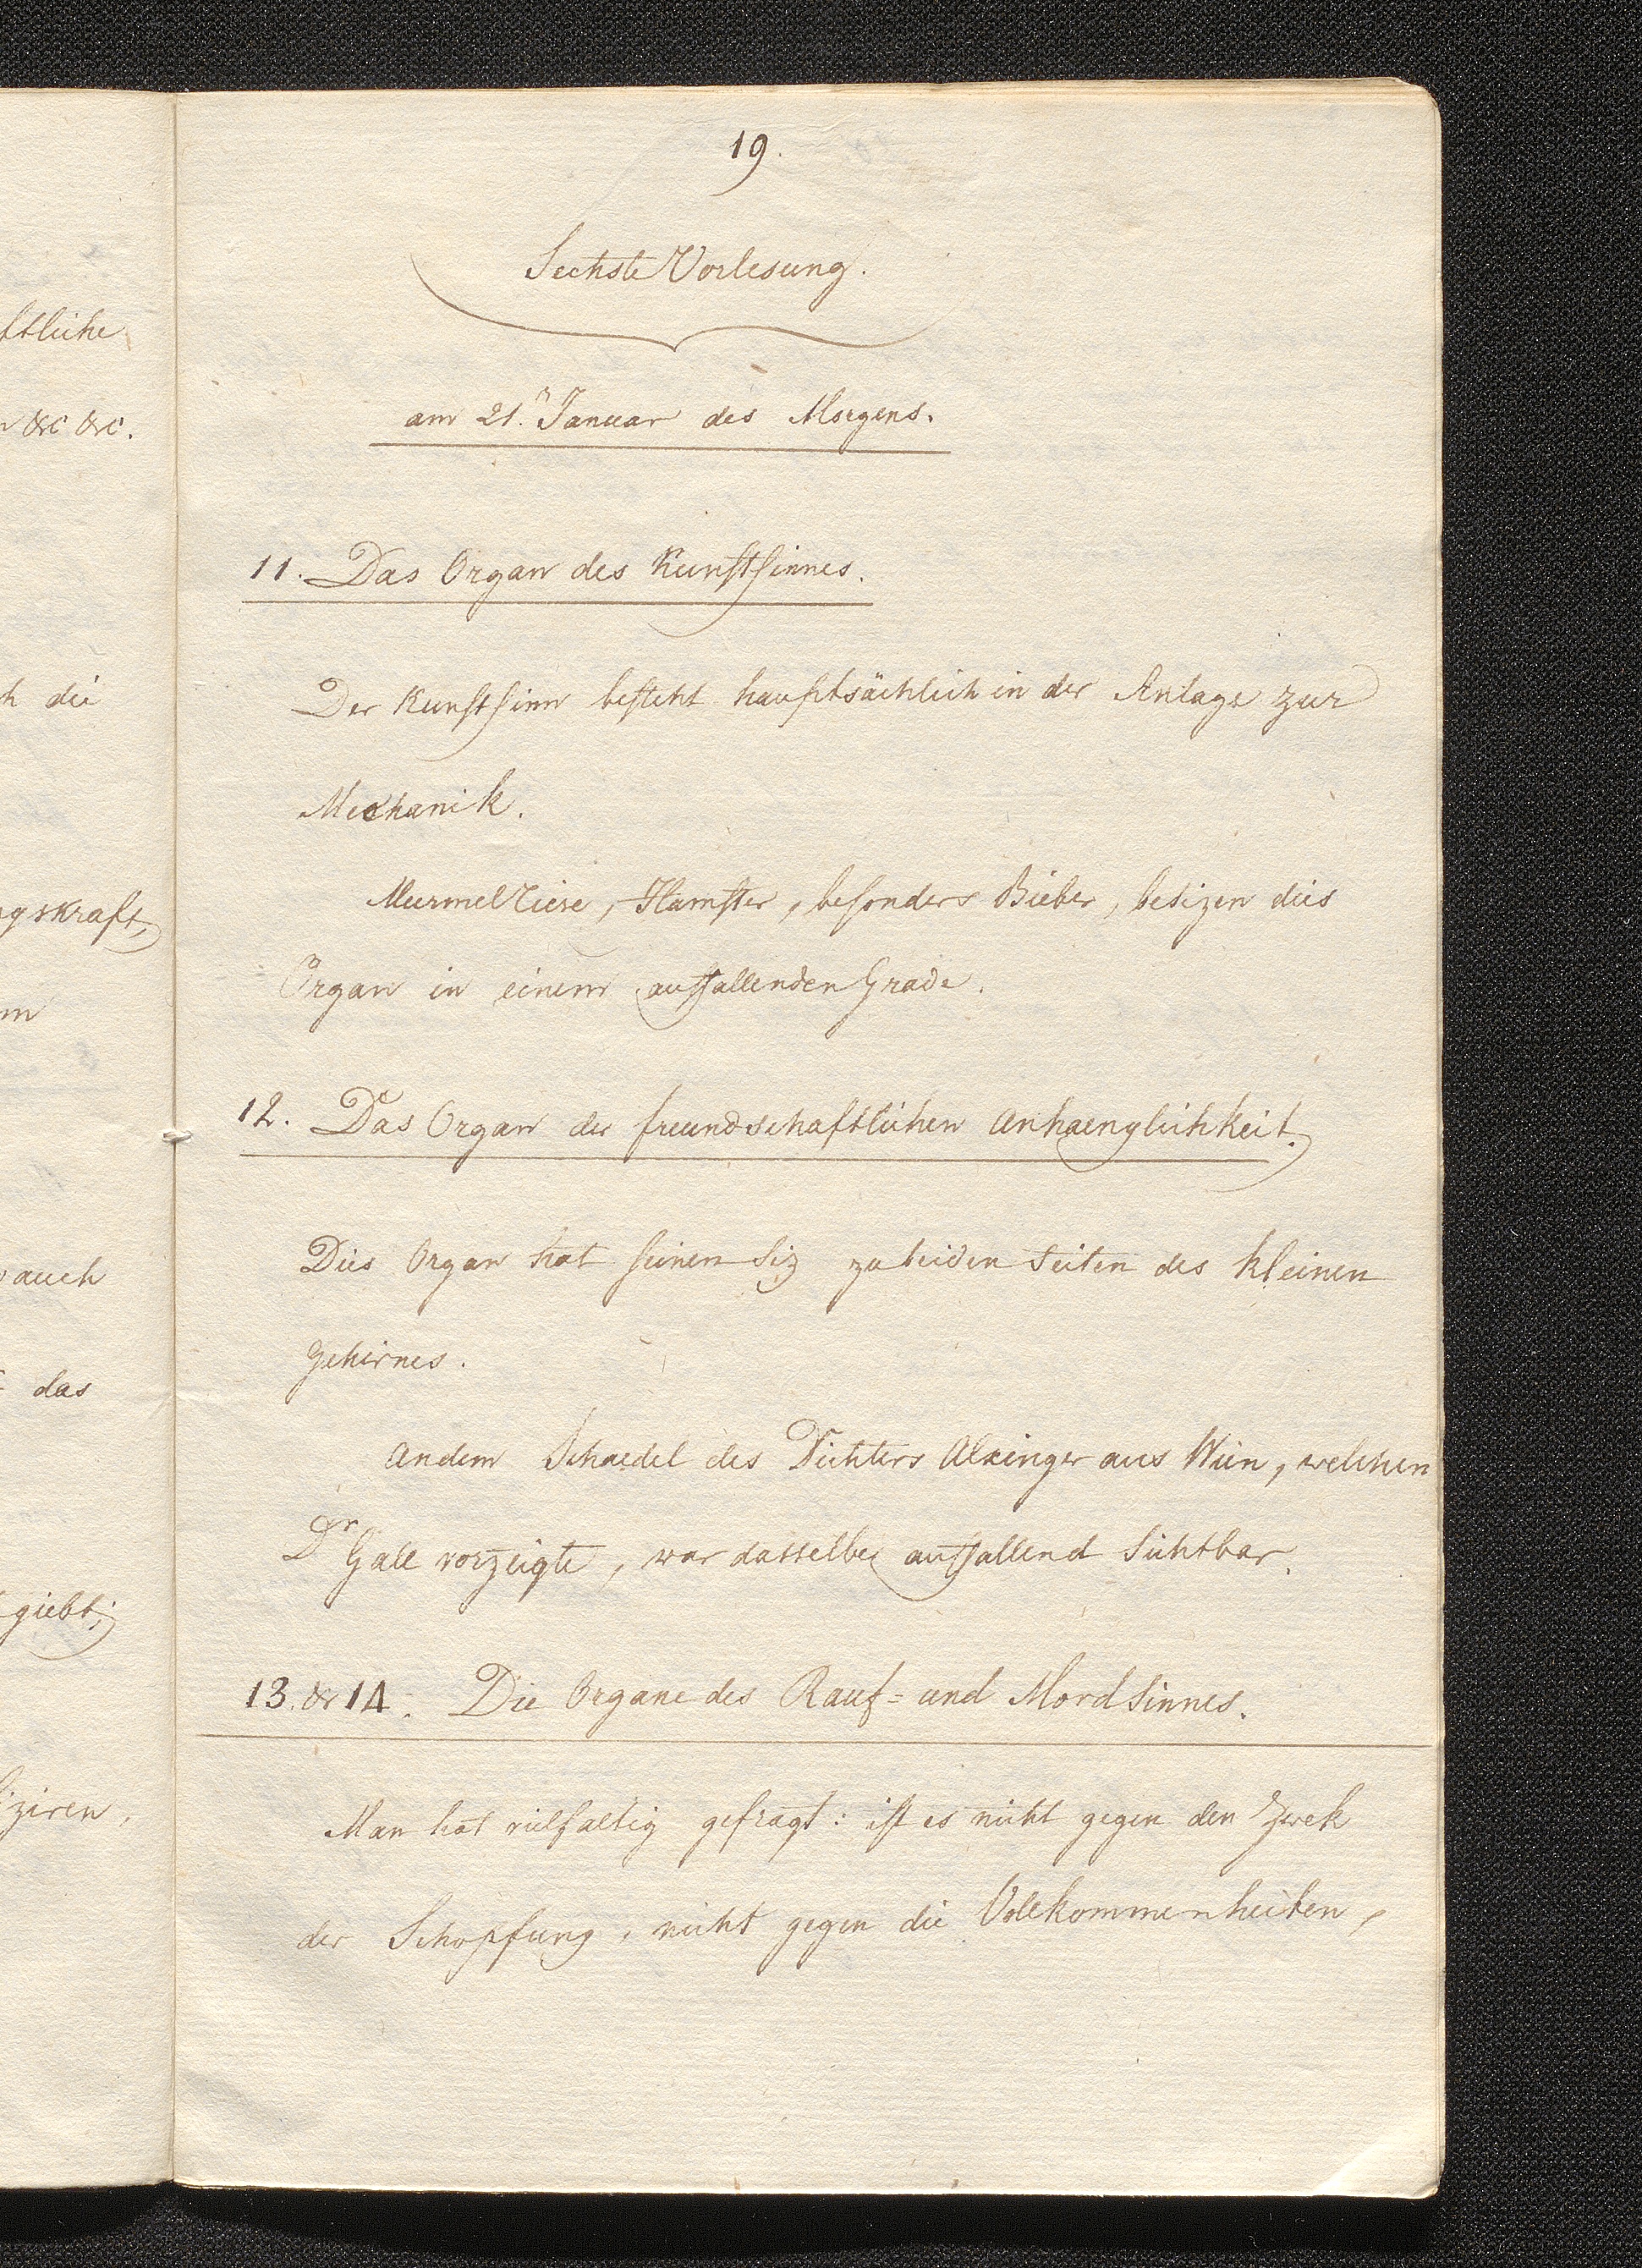 ftliche
&c &c.
h die
gskraft,
m
auch
das
giebt;
ziren,
19.
Sechste Vorlesung.
am 21.ⁿ Januar des Morgens.
11. Das Organ des Kunstsinnes.
Der Kunstsinn besteht hauptsächlich in der Anlage zur
Mechanik.
Murmeltiere, Hamster, besonders Bieber, besizen dies
Organ in einem auffallenden Grade.
12. Das Organ der freundschaftlichen Anhaenglichkeit.
Dies Organ hat seinen Siz zu beiden Seiten des kleinen
Gehirnes.
An dem Schaedel des Dichters Alxinger aus Wien, welchen
Dr Gall vorzeigte, war dasselbe auffallend sichtbar.
13. & 14. Die Organe des Rauf= und Mordsinnes.
Man hat vielfaltig gefragt: ist es nicht gegen den Zwek
der Schopfung, nicht gegen die Vollkommenheiten,